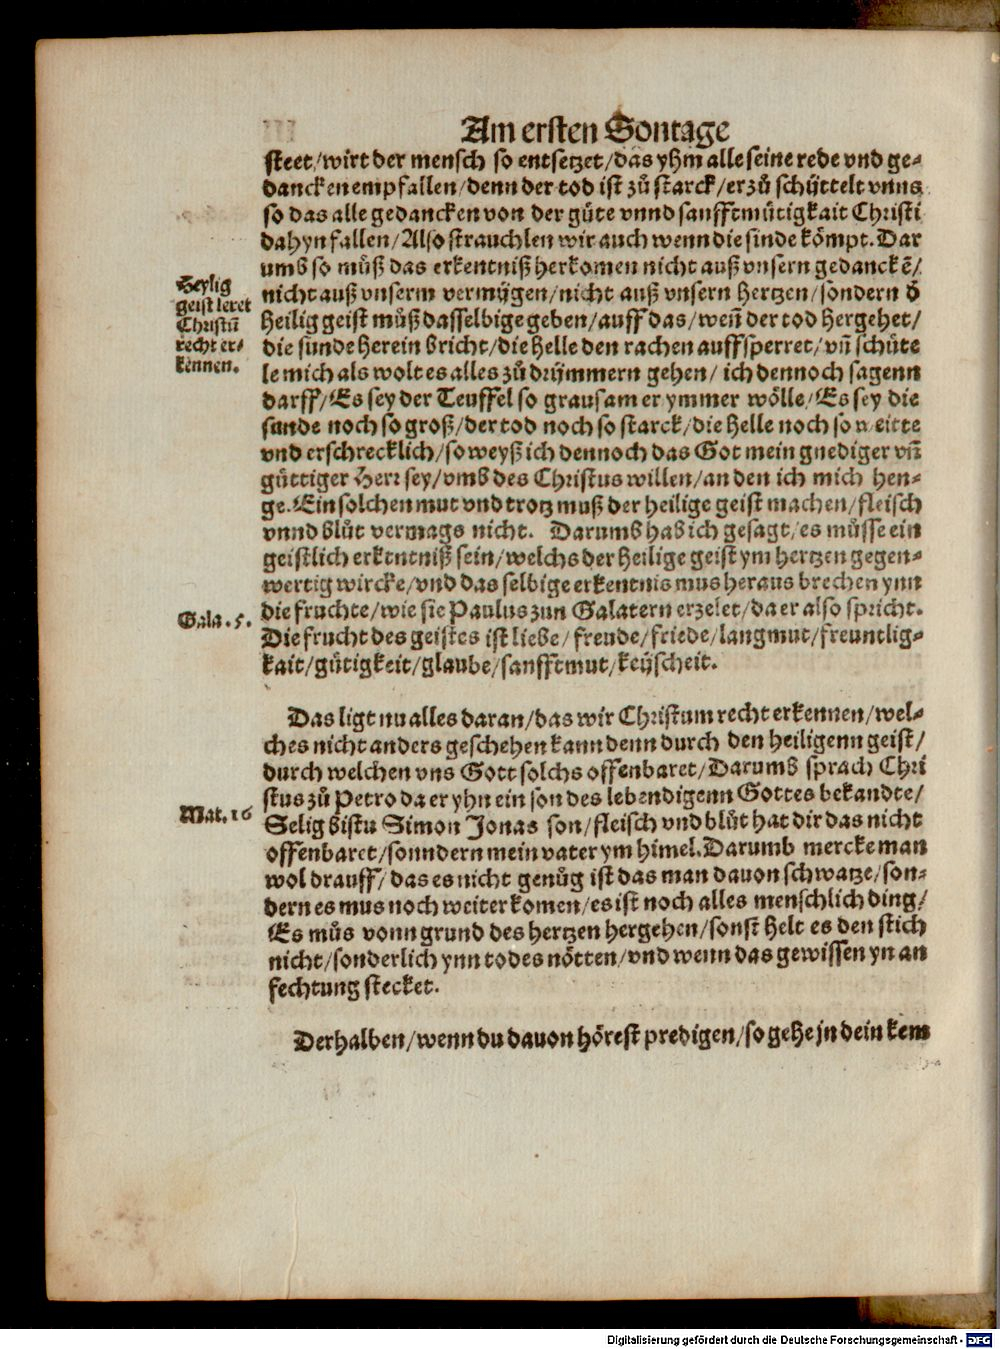 Am ersten Sontage
steet/wirt der mensch so entsetzet/das yhm alle seine rede vnd ge-
dancken empfallen/denn der tod ist zů starck/er zů schüttelt vnns
so das alle gedancken von der gůte vnnd sanfftmůtigkait Christi
dahyn fallen/Also strauchlen wir auch wenn die sinde kömpt. Dar
umb so můß das erkentniß herkomen nicht auß vnsern gedanckē/
nicht auß vnserm vermügen/nicht auß vnsern hertzen/sondern d̄
heilig geist můß dasselbige geben/auff das/weñ der tod hergehet/
die sunde herein bricht/die helle den rachen auffsperret/vñ schüte
le mich als wolt es alles zů drümmern gehen/ ich dennoch sagenn
darff/Es sey der Teuffel so grausam er ymmer wölle/Es sey die
sunde noch so groß/der tod noch so starck/die helle noch so weitte
vnd erschrecklich/so weyß ich dennoch das Got mein gnediger vñ
güttiger Herr sey/vmb des Christus willen/an den ich mich hen-
ge. Ein solchen mut vnd trotz muß der heilige geist machen/fleisch
vnnd blůt vermags nicht. Darumb hab ich gesagt/es müsse ein
geistlich erkentniß sein/welchs der heilige geist ym hertzen gegen-
wertig wircke/vnd das selbige erkentnis mus heraus brechen ynn
die fruchte/wie sie Paulus zun Galatern erzelet/da er also spricht.
Die frucht des geistes ist liebe/freude/friede/langmut/freuntlig-
kait/gütigkeit/glaube/sanfftmut/keüscheit.
Heylig
geist leret
Christũ
recht er-
kennen.
Gala. 5.
Das ligt nu alles daran/das wir Christum recht erkennen/wel-
ches nicht anders geschehen kann denn durch den heiligenn geist/
durch welchen vns Gott solchs offenbaret/Darumb sprach Chri
stus zů Petro da er yhn ein son des lebendigenn Gottes bekandte/
Selig bistu Simon Jonas son/fleisch vnd blůt hat dir das nicht
offenbaret/sonndern mein vater ym himel. Darumb mercke man
wol drauff/das es nicht genůg ist das man dauon schwatze/son-
dern es mus noch weiter komen/es ist noch alles menschlich ding/
Es můs vonn grund des hertzen hergehen/sonst helt es den stich
nicht/sonderlich ynn todes nötten/vnd wenn das gewissen yn an
fechtung stecket.
Mat. 16
Derhalben/wenn du dauon hörest predigen/so gehe jn dein kem
Digitalisierung gefördert durch die Deutsche Forschungsgemeinschaft - DFG